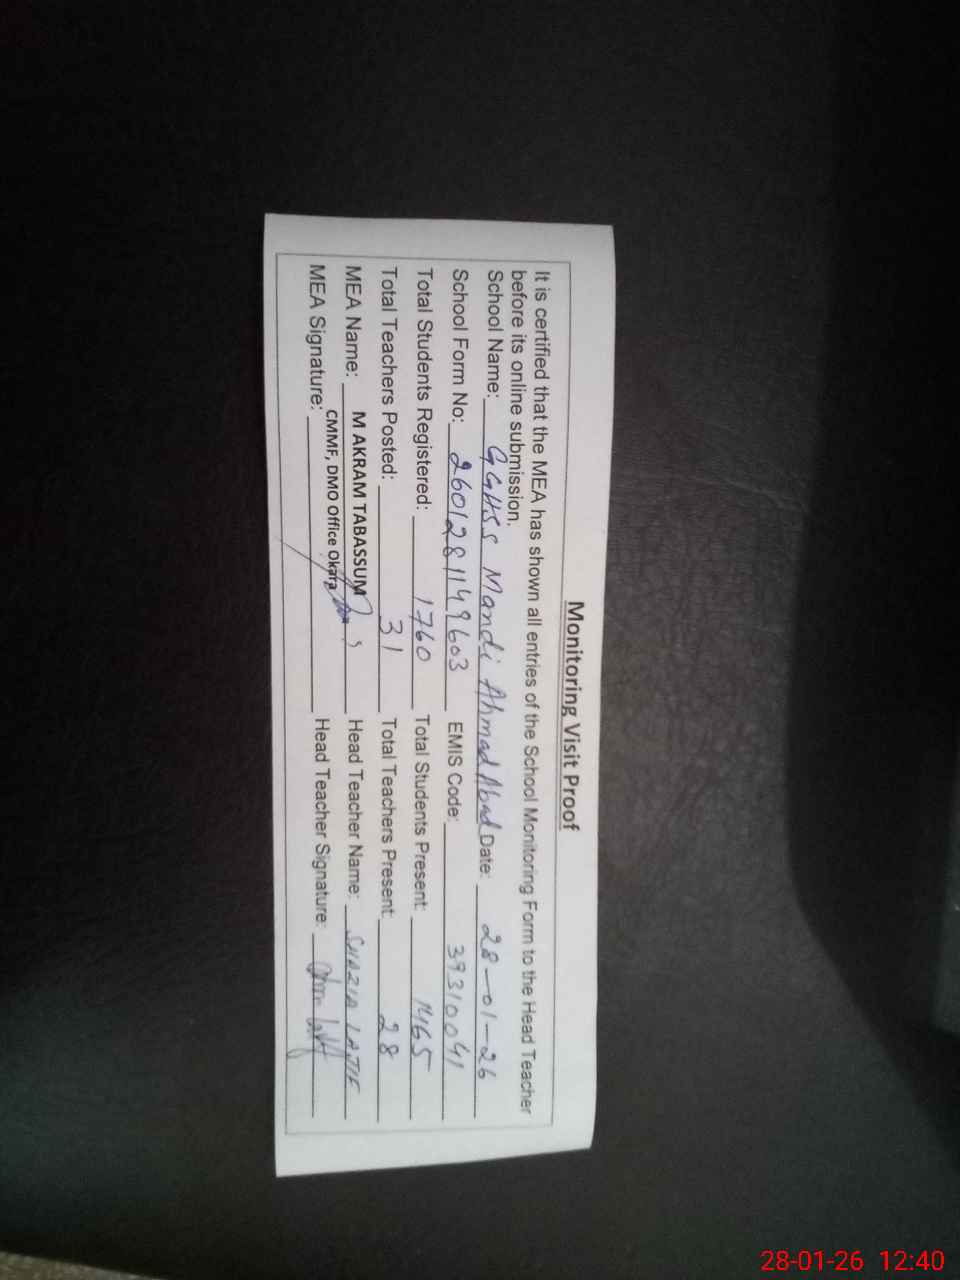 Monitoring Visit Proof
It is certified that the MEA has shown all entries of the School Monitoring Form to the Head Teacher
before its online submission.
School Name: GGHSS Mandi Ahmad Abad Date: 28-01-26
School Form No: 2601281149603 EMIS Code: 39310041
Total Students Registered: 1760 Total Students Present: 1465
Total Teachers Posted: 31 Total Teachers Present: 28
MEA Name: M AKRAM TABASSUM Head Teacher Name: SHAZIA
CMMF, DMO Office Okara
MEA Signature: Head Teacher Signature:
28-01-26 12:40